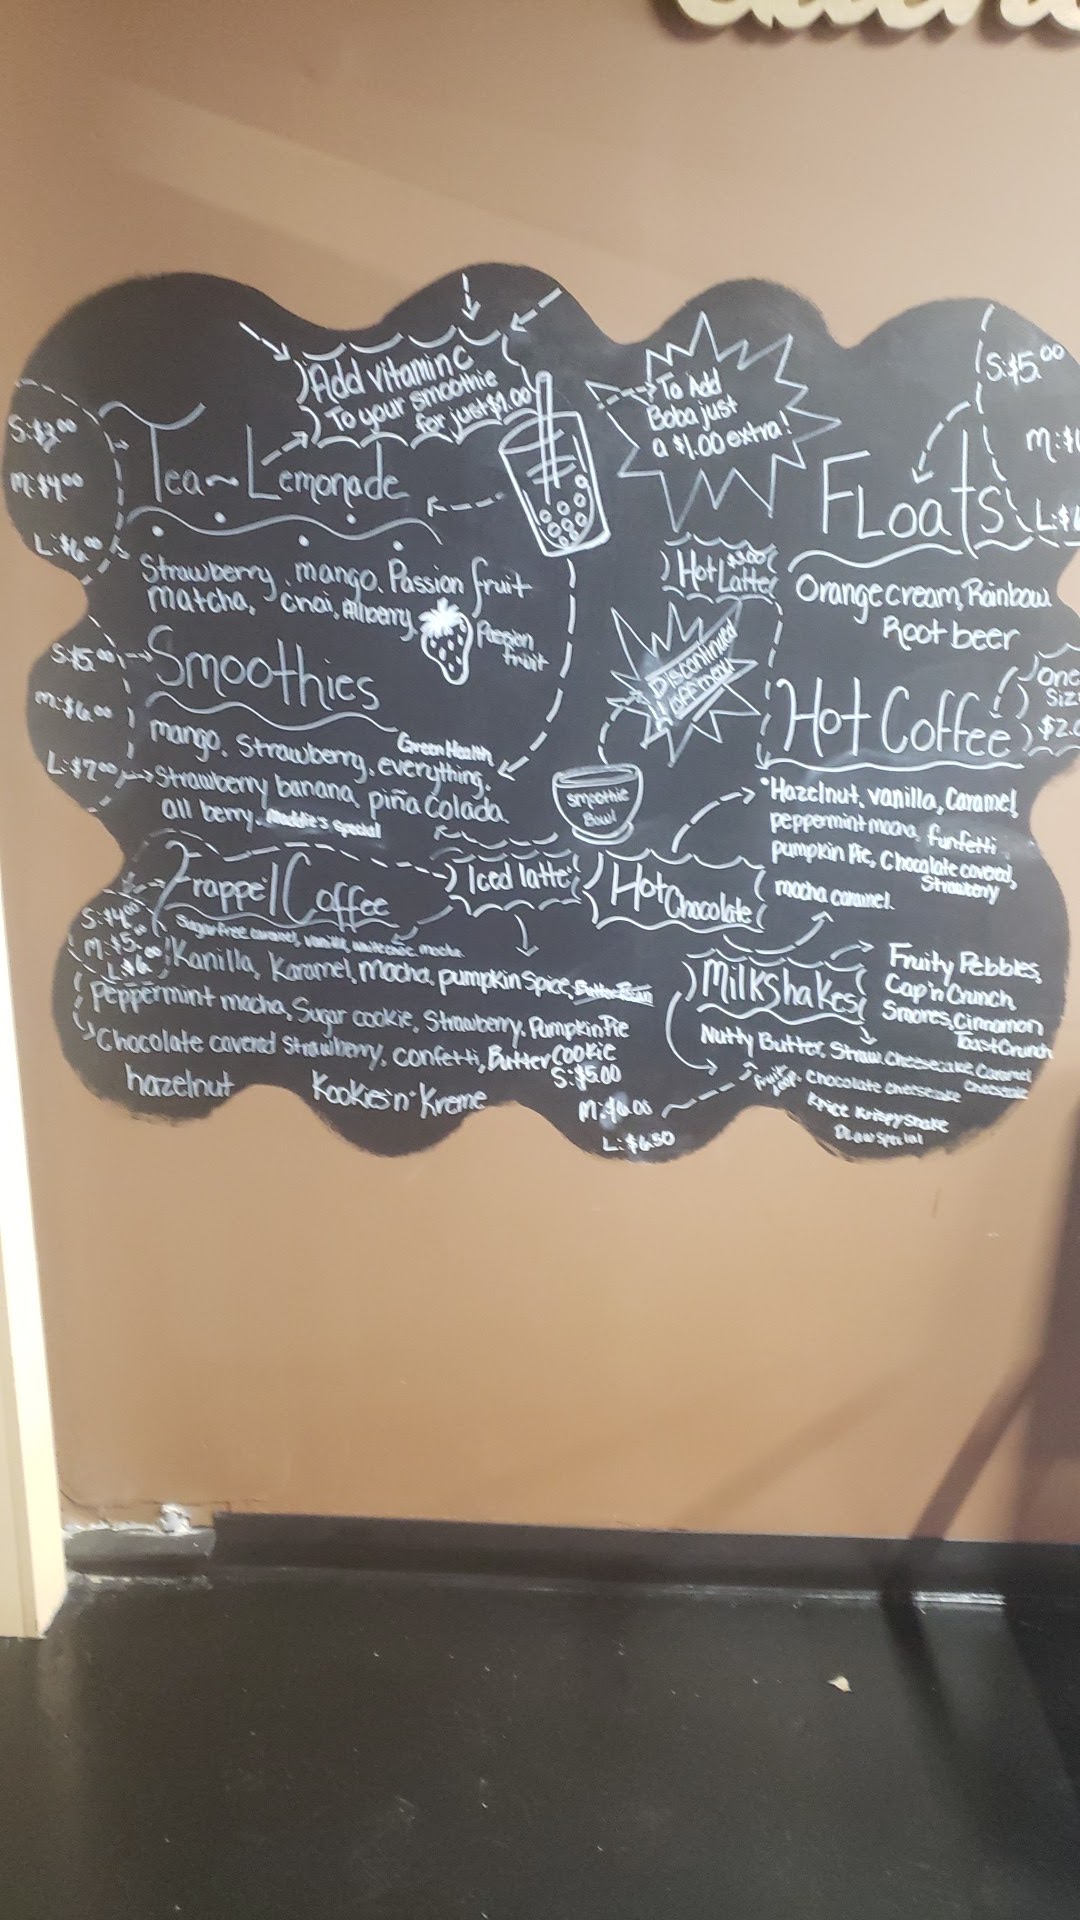 Add vitamin C
To your smoothie
for just $1.00
To Add
Boba just
a $1.00 extra!
S:$5.00
L:$
S:$3.00
M:$4.00
L:$6.00
Tea~Lemonade
Strawberry, mango, Passion fruit
matcha, chai, Allberry,
Passion
fruit
Floats
Orange cream, Rainbow
Root beer
$3.00
Hot Latte
Discontinued
off menu
S:$5.00
M:$6.00
L:$7.00
Smoothies
mango, Strawberry, everything,
Green Health
Strawberry banana, piña Colada
all berry, Maddie's special
Smoothie
Bowl
Hot Coffee
one
Hazelnut, vanilla, Caramel,
peppermint mocha, funfetti
pumpkin Pie, Chocolate covered,
Strawberry
mocha caramel.
Frappe Coffee
Iced latte
Hot Chocolate
S:$4.00
M:$5.00
L:$6.
Sugar free caramel, vanilla, white choc, mocha
Kanilla, Karamel, mocha, pumpkin Spice,
Peppermint mocha, Sugar cookie, Strawberry, Pumpkin Pie
Chocolate covered Strawberry, confetti, Butter Cookie
hazelnut Kookies'n'Kreme
Milkshakes
Fruity Pebbles,
Cap'n Crunch,
Smores, Cinnamon
Toast Crunch
Nutty Butter, Straw. Cheesecake, Caramel
Cheesecake
Chocolate cheesecake
Krice Krispy Shake
S:$5.00
M:$6.00
L:$6.50